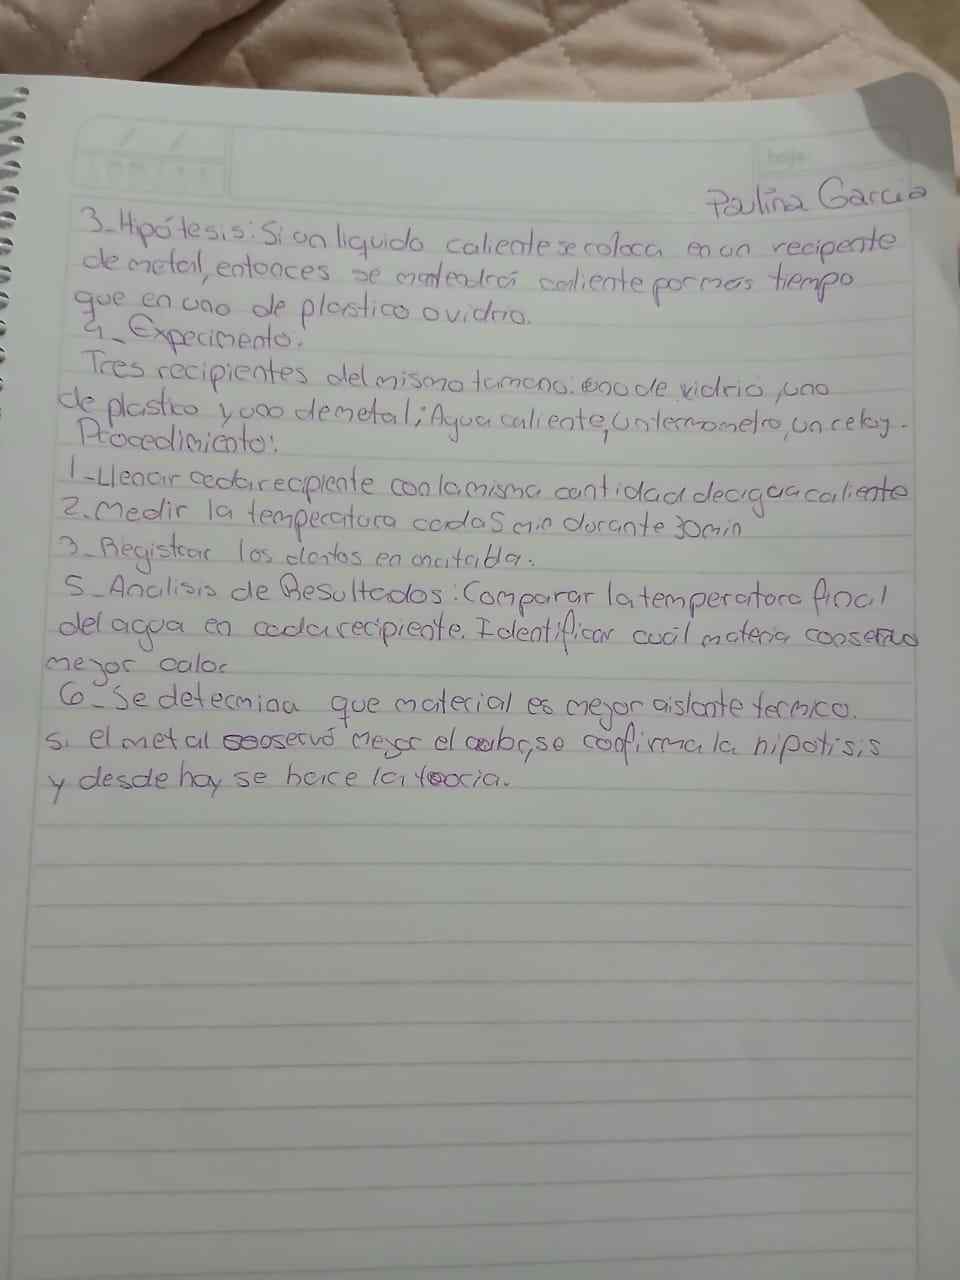 Paulina Garcia
3_Hipótesis: Si un liquido caliente se coloca en un recipente
de metal, entonces se mantendrá caliente por mas tiempo
que en uno de plastico o vidrio.
4_ Experimento:
Tres recipientes del mismo tamano: uno de vidrio, uno
de plastico y uno de metal; Agua caliente, un termometro, un reloj.
Procedimiento:
1-Llenar cada recipiente con la misma cantidad de agua caliente
2. Medir la temperatura cada 5 min durante 30 min
3_Registrar los datos en una tabla.
5_Analisis de Resultados: Comparar la temperatura final
del agua en cada recipiente. Identificar cuál materia conserva
mejor calor
6_Se determina que material es mejor aislante termico.
si el metal conservó mejor el calor, se confirma la hipotisis
y desde hay se hace la teoria.